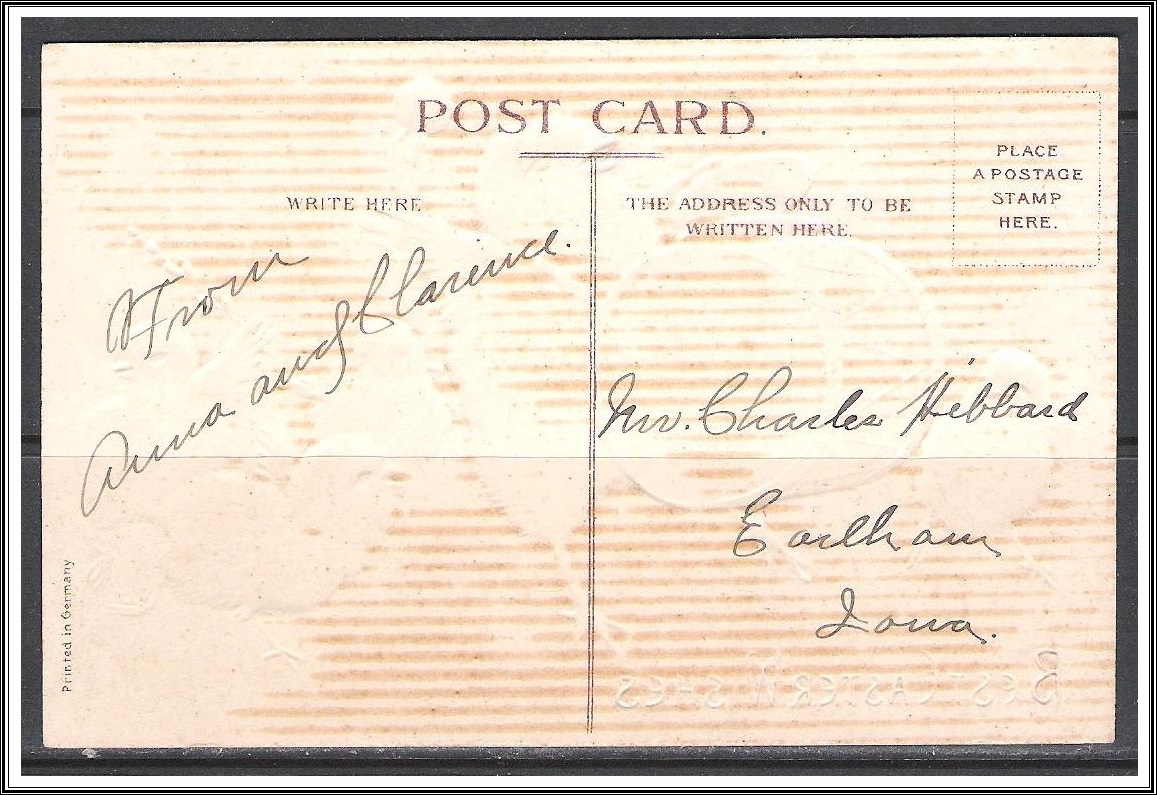 POST CARD.
WRITE HERE
From
Anna and Clarence.
THE ADDRESS ONLY TO BE
WRITTEN HERE.
PLACE
A POSTAGE
STAMP
HERE.
Mr. Charles Hibbard
Earlham
Iowa.
Printed in Germany
BEST EASTER WISHES